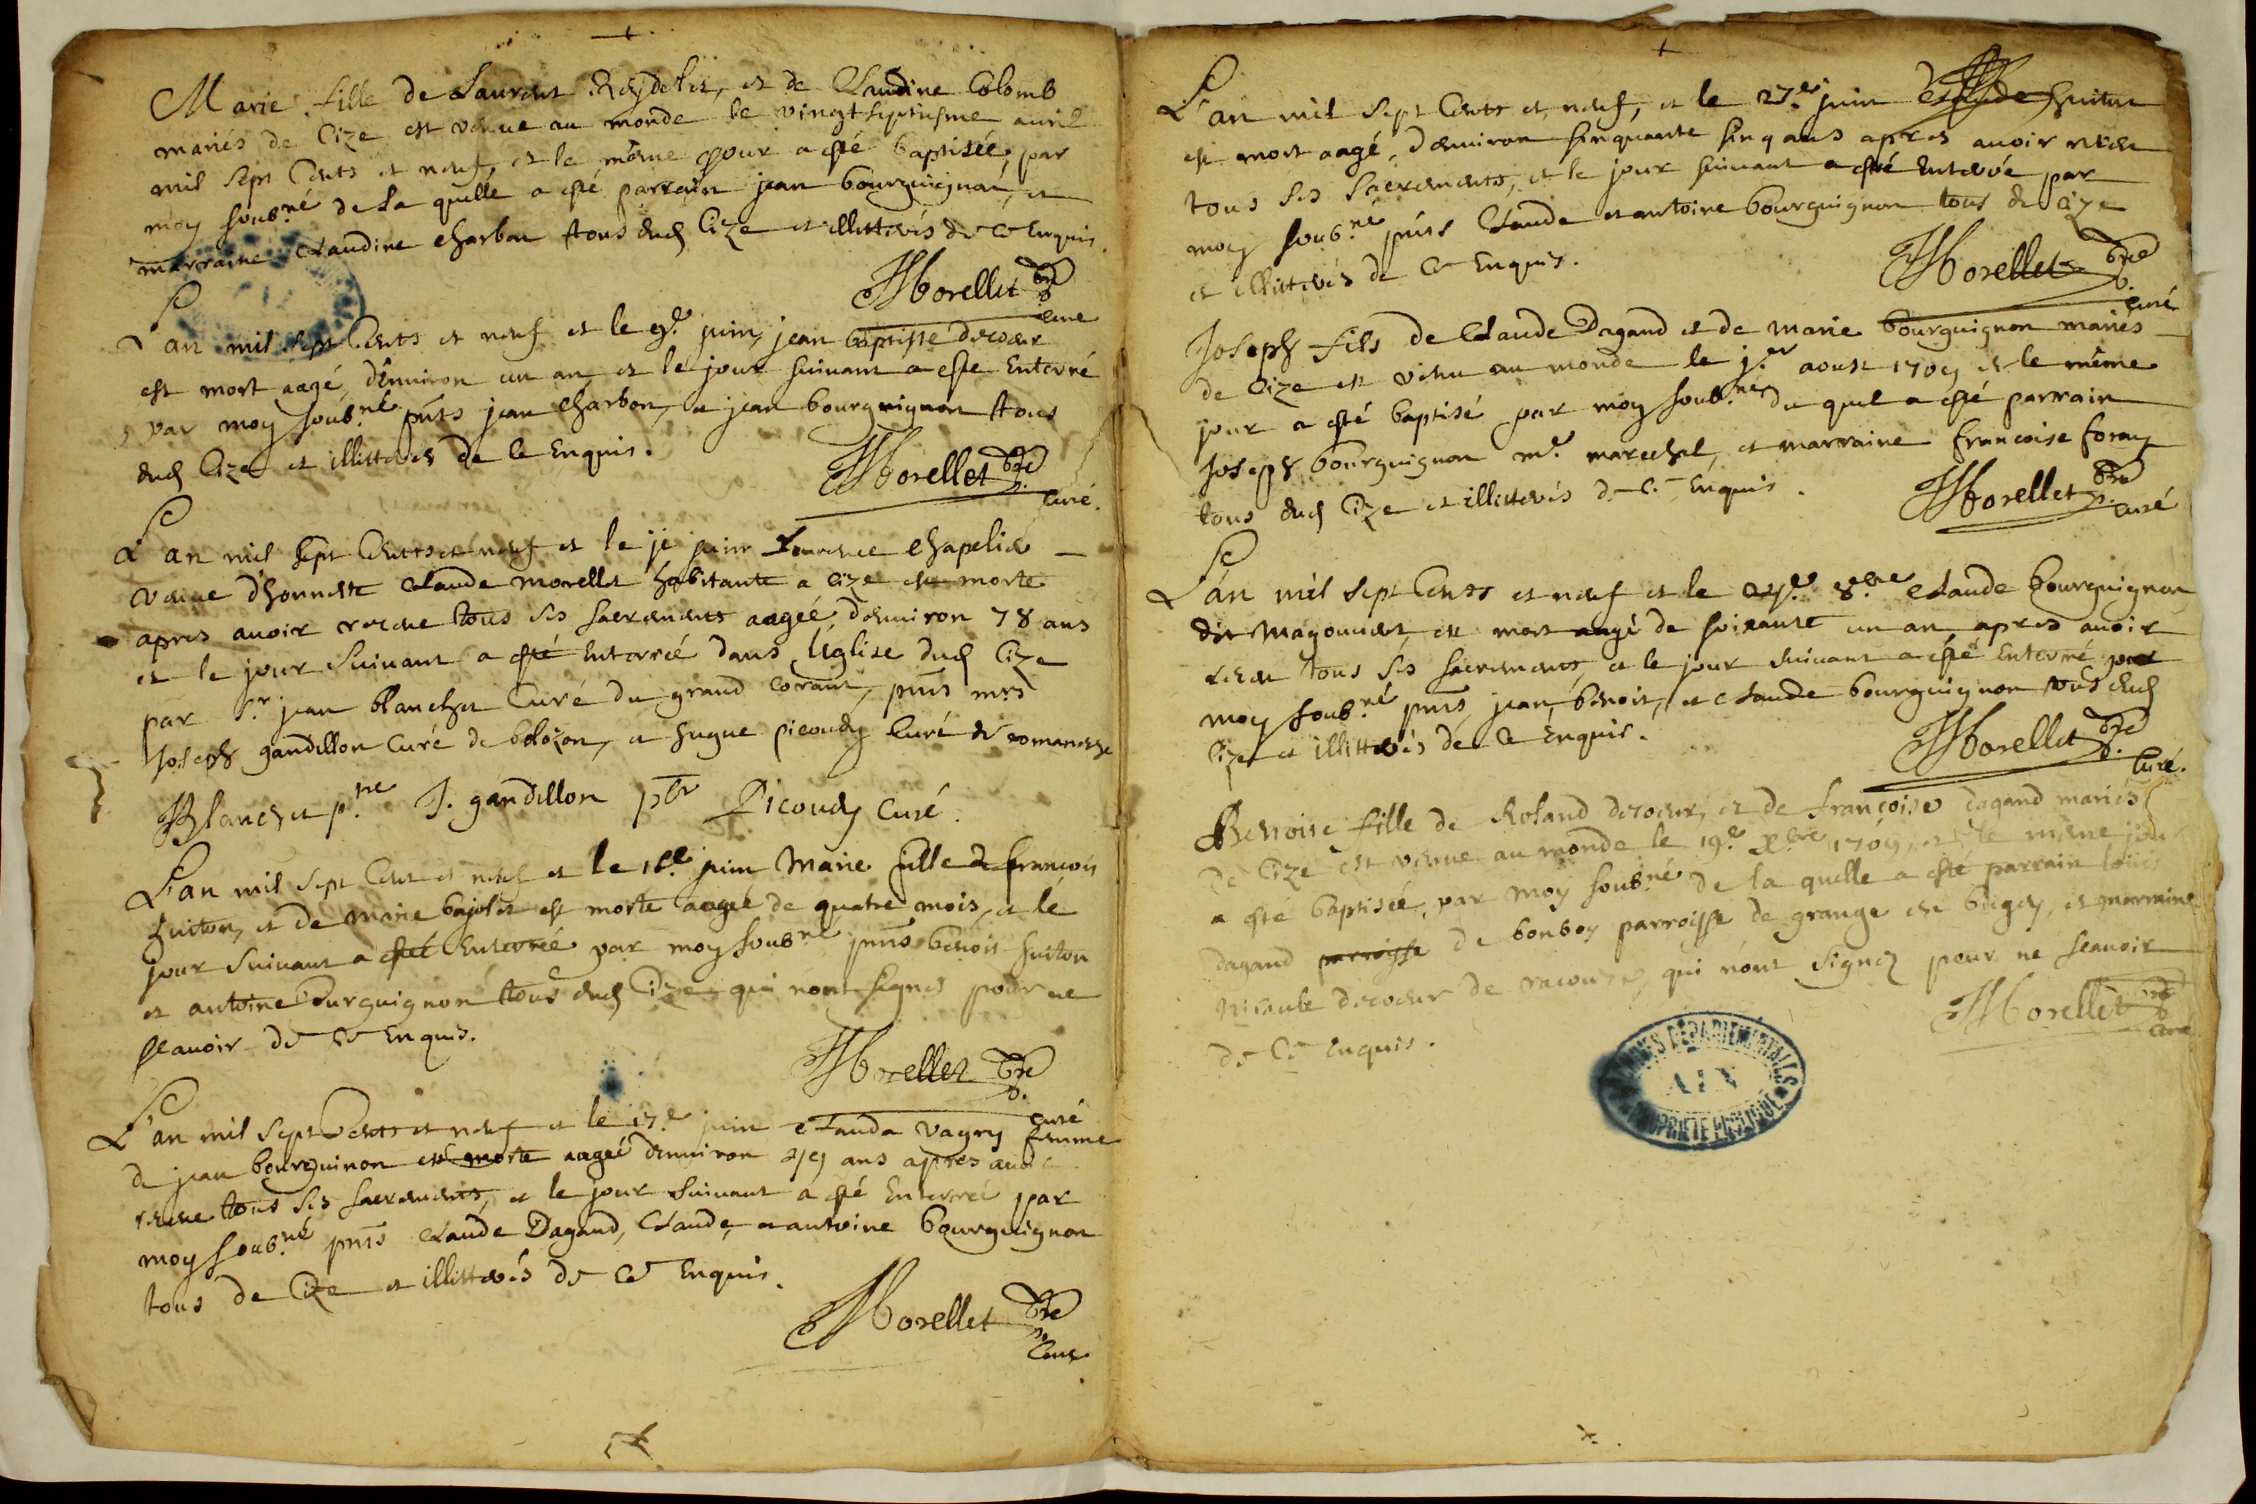 Marie fille de Laurent Reydelet, et de Claudine Colomb
mariés de Cize est venue au monde le vingt septiesme avril
mil sept Cents et neuf, et le même jour a esté baptisée, par
moy soubné de la quelle a esté parrain jean bourguignon, et
marraine Claudine charbon tous dud Cize et illitterés de ce Enquis.
Morellet pbre
curé
L'an mil sept Cents et neuf et le 9e juin, jean baptiste decoeur
est mort aagé d'environ un an et le jour suivant a esté Enterré
par moy soubné pnts jean charbon, et jean bourguignon tous
dud Cize et illitterés de ce Enquis.
Morellet pbre
curé.
L'an mil sept Cents et neuf et le je juin Laurence chapelier
veuve d'honneste Claude morellet habitante a Cize est morte
apres avoir receue tous ses sacrements aagée d'environ 78 ans
et le jour suivant a esté Enterrée dans l'église dud Cize
par sr jean blanchet Curé du grand corant, pnts mrs
Joseph gandillon Curé de bolozon, et hugue picoudy Curé de romaneche
Blanchet ptre J. gandillon pbr Picoudy Curé.
L'an mil sept Cent et neuf et le 16e juin Marie fille de françois
huiton, et de marie bajolet est morte aagée de quatre mois, et le
jour suivant a esté Enterrée par moy soubné pnts benoit huiton
et antoine bourguignon tous dud Cize qui nont signés pour ne
sçavoir de ce Enquis.
Morellet pbre
curé
L'an mil sept Cents et neuf et le 17e juin Clauda vagny femme
de jean bourguinon est morte aagée denviron ans apres avoir
receue tous ses sacrements, et le jour suivant a esté Enterrée par
moy soubné pnts Claude Dagand, Claude, et antoine bourguignon
tous de Cize et illitterés de ce Enquis.
Morellet pbre
Curé
L'an mil sept Cents et neuf, et le 27e juin Claude huiton
est mort aagé, d'environ sinquante sinq ans apres avoir receu
tous ses sacrements, et le jour suivant a esté Enterré par
moy soubné pnts Claude et antoine bourguignon tous de Cize
et illitterés de ce Enquis.
Morellet pbre
curé
Joseph fils de Claude Dagand et de marie bourguignon mariés
de Cize est venu au monde le jer aoust 1709 et le même
jour a esté baptisé par moy soubné du quel a esté parrain
Joseph bourguignon me marechal, et marraine francoise foray
tous dud Cize et illitterés de ce Enquis.
Morellet pbre
curé
L'an mil sept Cents et neuf et le 8bre Claude bourguignon
dit est mort aagé de soixante un an apres avoir
receu tous ses sacrements et le jour suivant a esté Enterré par
moy soubné pnts jean, benoit, et Claude bourguignon tous dud
Cize et illitterés de ce Enquis.
Morellet pbre
Curé.
Benoise fille de Roland decoeur, et de françoise dagand mariés
de Cize est venue au monde le 19e xbre 1709, et le même jour
a esté baptisée, par moy soubné de la quelle a esté parrain
dagand parroisse de bonboy parroisse de grange en et marraine
decoeur de racouze, qui n'ont signez pour ne sçavoir
de ce Enquis.
Morellet pbre
curé
ARCHIVES DÉPARTEMENTALES
AIN
PROPRIÉTÉ PUBLIQUE